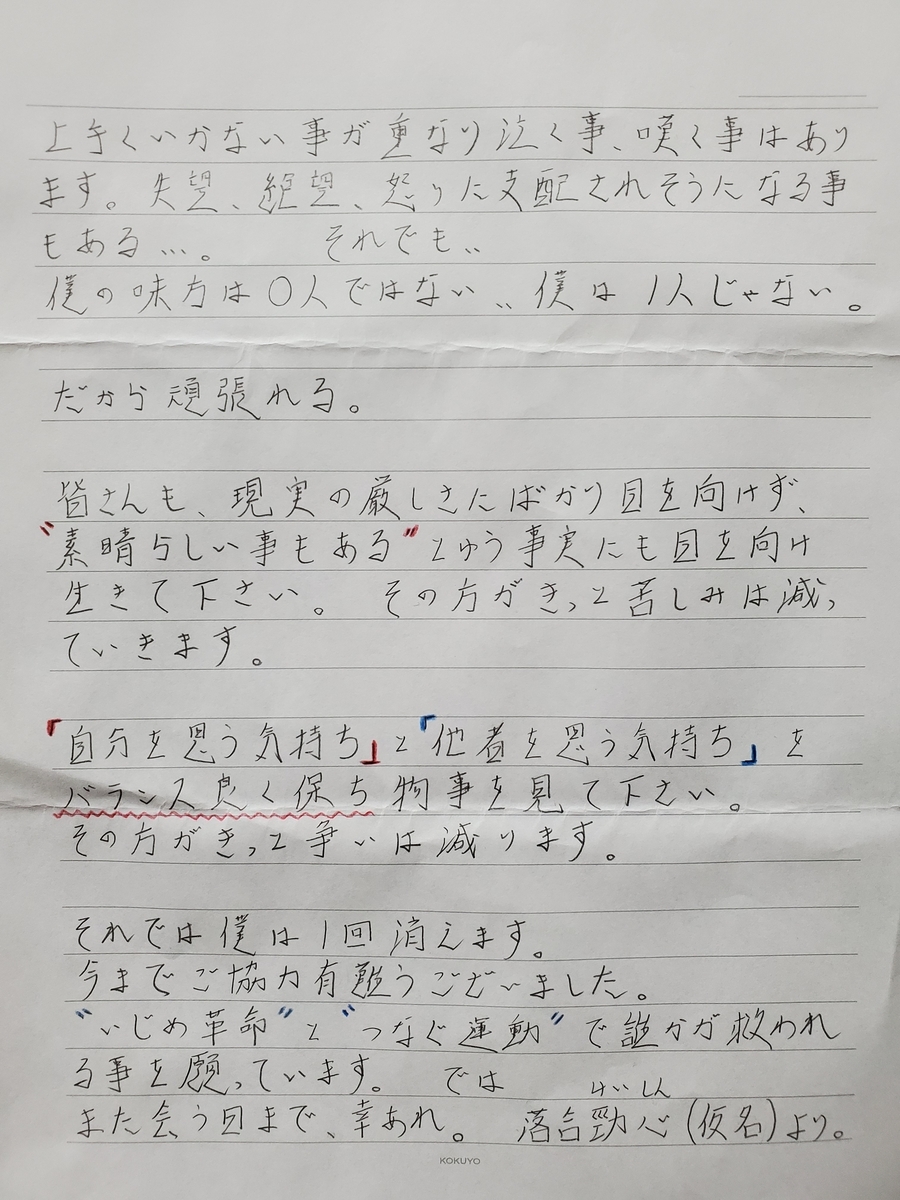 上手くいかない事が重なり泣く事、嘆く事はあり
ます。失望、絶望、怒りに支配されそうになる事
もある…。 それでも‥
僕の味方は〇人ではない‥僕は1人じゃない。
だから頑張れる。
皆さんも、現実の厳しさたばかり目を向けず、
"素晴らしい事もある"とゆう事実にも目を向け
生きて下さい。 その方がきっと苦しみは減っ
ていきます。
「自分を思う気持ち」と「他者を思う気持ち」を
バランス良く保ち物事を見て下さい。
その方がきっと争いは減ります。
それでは僕は1回消えます。
今までご協力有難うございました。
"いじめ革命"と"つなぐ運動"で誰かが救われ
る事を願っています。 では
けいしん
また会う日まで、幸あれ。 落合勁心(仮名)より。
KOKUYO